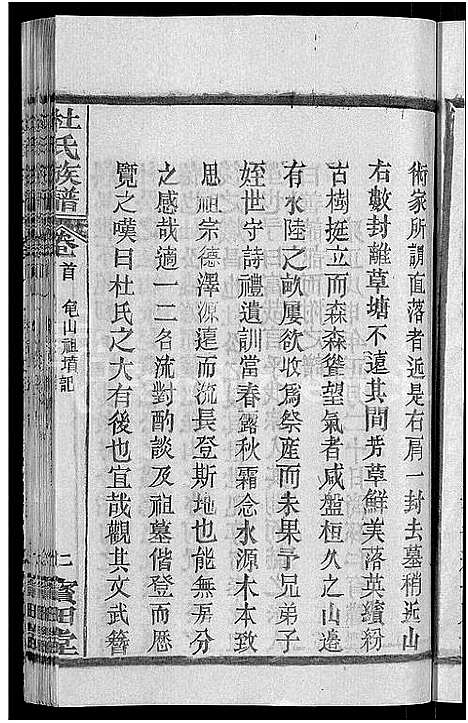 術家所謂直落者近是右肩一封去墓稍近山
右數封離草塘不遠其間芳草鮮美落英繽粉
古樹挺立而森森聳望氣者咸盤桓久之山邉
有水陸之畝屢欲收爲祭產而未果予兄弟子
姪世守詩禮遺訓當春露秋霜念水源木本致
思祖宗德澤源遠而流長登斯地也能無房分
之感哉適一二名流對酌談及祖墓偕登而歷
覽之嘆曰杜氏之大有後也宜哉觀其文武簪
杜氏族譜 卷首 龟山祖墳記 二 寳田堂